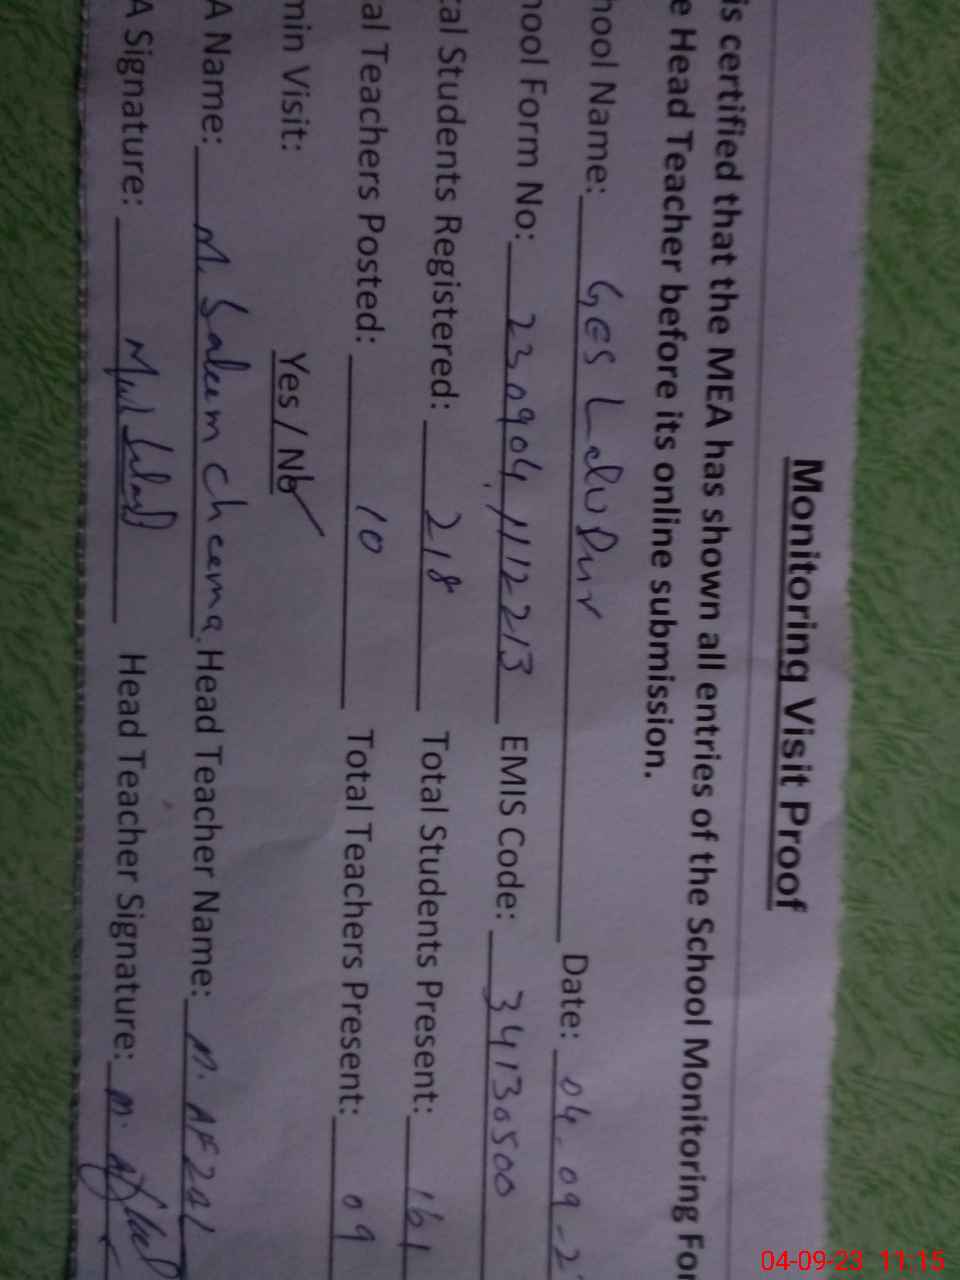 Monitoring Visit Proof
is certified that the MEA has shown all entries of the School Monitoring For
e Head Teacher before its online submission.
hool Name: GES Lalu Pur Date: 04-09-2
hool Form No: 230904112213 EMIS Code: 34130500
tal Students Registered: 218 Total Students Present: 161
al Teachers Posted: 10 Total Teachers Present: 09
min Visit: Yes / No
A Name: M. Saleem Cheema. Head Teacher Name: M. AFzal
A Signature: Head Teacher Signature:
04-09-23 11:15